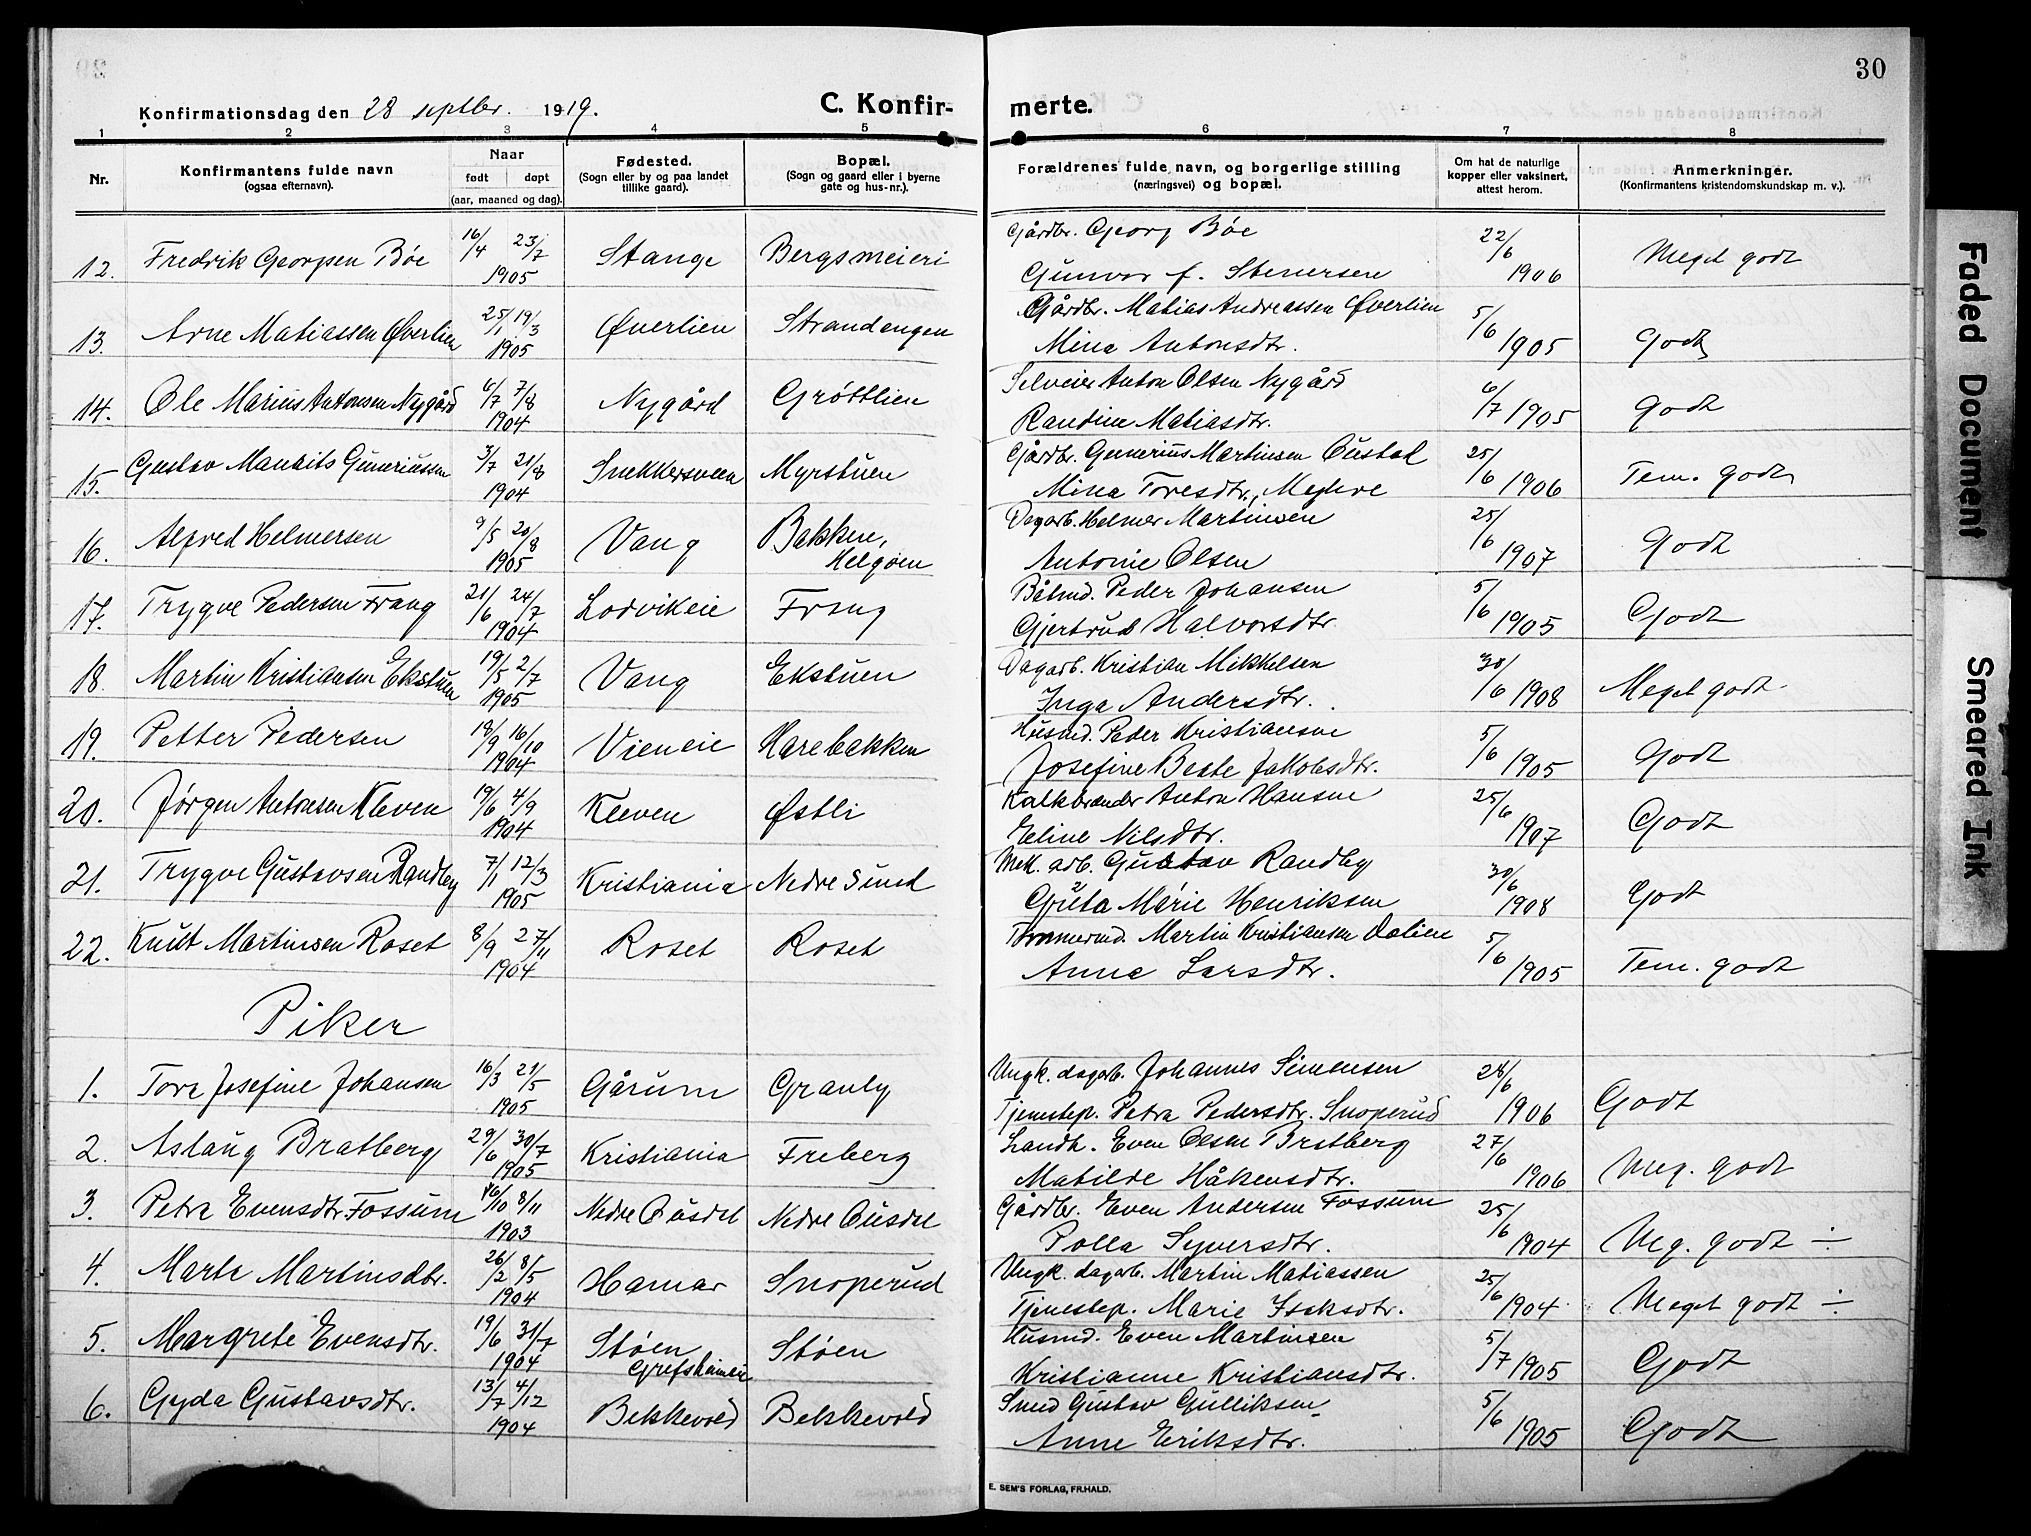 30
Konfirmationsdag den 28 septbr. 1919.
C. Konfirmerte.
1 2 3 4 5 6 7 8
Nr.
Konfirmantens fulde navn
(ogsaa efternavn).
Naar
født døpt
(aar, maaned og dag).
Fødested.
(Sogn eller by og paa landet
tillike gaard).
Bopæl.
(Sogn og gaard eller i byerne
gate og hus-nr.).
Forældrenes fulde navn, og borgerlige stilling
(næringsvei) og bopæl.
Om hat de naturlige
kopper eller vaksinert,
attest herom.
Anmerkninger.
(Konfirmantens kristendomskundskap m. v.).
12. Fredrik Georgsen Böe 16/4 23/7 1905 Stange Bergsmeieri Gårdbr. Georg Böe
Gunvor f. Stenersen 22/6 1906 Meget godt
13. Arne Matiassen Øverlien 25/1 19/3 1905 Øverlien Strandengen Gårdbr. Matias Andreassen Øverlien
Mina Antonsdtr. 5/6 1905 Godt
14. Ole Marius Antonsen Nygård 6/7 7/8 1904 Nygård Gröttlien Selveier Anton Olsen Nygård
Randine Matiasdtr. 6/7 1905 Godt
15. Gustav Maurits Guneriussen 3/7 21/8 1904 Snekkersveen Myrstuen Gårdbr. Gunerius Martinsen
Mina Toresdtr. 25/6 1906 Tem. godt
16. Alfred Helmersen 9/5 20/8 1905 Vang Bakken,
Helgöen Dagarb. Helmer Martinsen
Antonie Olsen 25/6 1907 Godt
17. Trygve Pedersen Frang 21/6 24/7 1904 Lodvikeie Frang Peder Johansen
Gjertrud Halvorsdtr. 5/6 1905 Godt
18. Martin Kristiansen Ekstuen 19/5 2/7 1905 Vang Ekstuen Dagarb. Kristian Mikkelsen
Inga Andersdtr. 30/6 1908 Meget godt
19. Petter Pedersen 18/9 16/10 1904 Vieneie Harebakken Husmd. Peder Kristiansen
Josefine Beate Jakobsdtr. 5/6 1905 Godt
20. Jörgen Antonsen Kleven 19/6 4/9 1904 Kleven Østli Kalkbrænder Anton Hansen
Eline Nilsdtr. 25/6 1907 Godt
21. Trygve Gustavsen Randby 7/1 12/3 1905 Kristiania Nedre Sund Mek. arb. Gustav Randby
Marie Henriksen 30/6 1908 Godt
22. Knut Martinsen Roset 8/9 27/11 1904 Roset Roset Tømmermd. Martin Kristiansen Dalien
Anne Larsdtr. 5/6 1905 Tem. godt
Piker
1. Tora Josefine Johansen 16/3 21/5 1905 Gårum Granly Ungk. dagarb. Johannes Simensen
Tjenestep. Petra Pedersdtr. Snoperud 28/6 1906 Godt
2. Aslaug Bratberg 29/6 30/7 1905 Kristiania Freberg Landh. Even Olsen Bratberg
Matilde Håkensdtr. 27/6 1906 Meg. godt
3. Petra Evensdtr. Fossum 16/10 8/11 1903 Nedre Ousdal Nedre Ousdal Gårdbr. Even Andersen Fossum
Polla Syversdtr. 25/6 1904 Meg. godt ÷
4. Marta Martinsdtr. 26/2 8/5 1904 Hamar Snoperud Ungk. dagarb. Martin Matiassen
Tjenestep. Marie Isaksdtr. 25/6 1904 Meget godt ÷
5. Margrete Evensdtr. 19/6 31/7 1904 Stöen
Grefsheimeie Stöen Husmd. Even Martinsen
Kristianne Kristiansdtr. 5/7 1905 Godt
6. Gyda Gustavsdtr. 13/7 4/12 1904 Bekkevold Bekkevold Smed Gustav Gulliksen
Anne Eriksdtr. 5/6 1905 Godt
E. SEM'S FORLAG, FR.HALD.
Faded Document
Smeared Ink